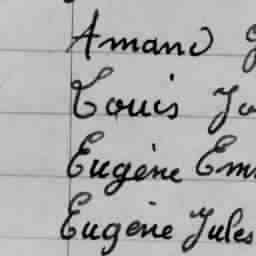 Amand
Louis
Eugène
Eugène Jules